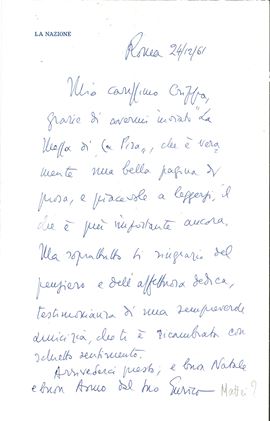 LA NAZIONE
Roma 24/12/61
Mio carissimo
grazie di avermi inviato "La
di La Pira", che è vera
mente una bella pagina di
prosa, e piacevole a leggersi, il
che è più importante ancora.
Ma soprattutto ti ringrazio del
pensiero e dell'affettuosa dedica,
testimonianza di una sempreverde
amicizia, che ti è ricambiata con
schietto sentimento.
Arrivederci presto, e buon Natale
e buon Anno dal tuo Enrico Mattei ?